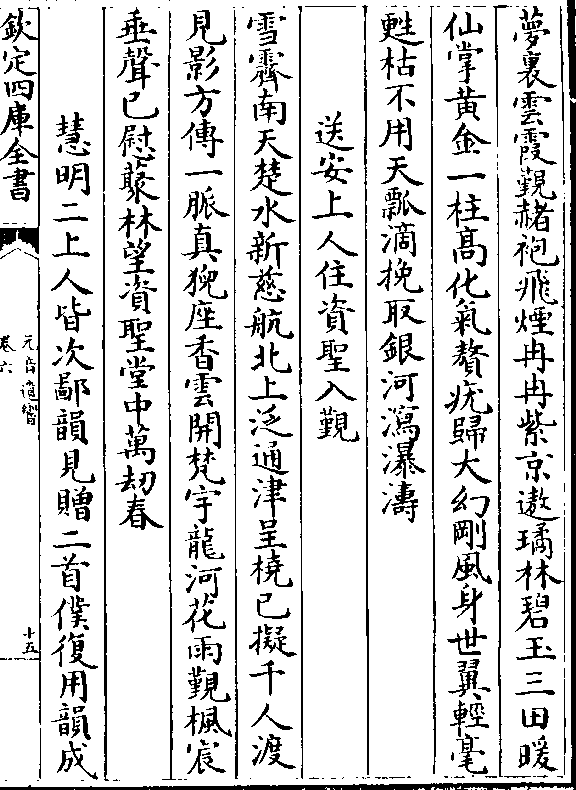 夢裏雲霞覲赭袍飛煙冉冉紫京遨璚林碧玉三田暖
仙掌黄金一柱髙化氣贅疣歸大幻剛風身世翼輕毫
甦枯不用天瓢滴挽取銀河瀉瀑濤
送安上人住資聖入覲
雪霽南天楚水新慈航北上泛通津呈橈已擬千人渡
見影方傳一脈真猊座香雲開梵宇龍河花雨覲楓宸
垂聲已慰藂林望資聖堂中萬刼春
慧明二上人皆次鄙韻見贈二首僕復用韻成
欽定四庫全書
元音遺響
卷六
十五